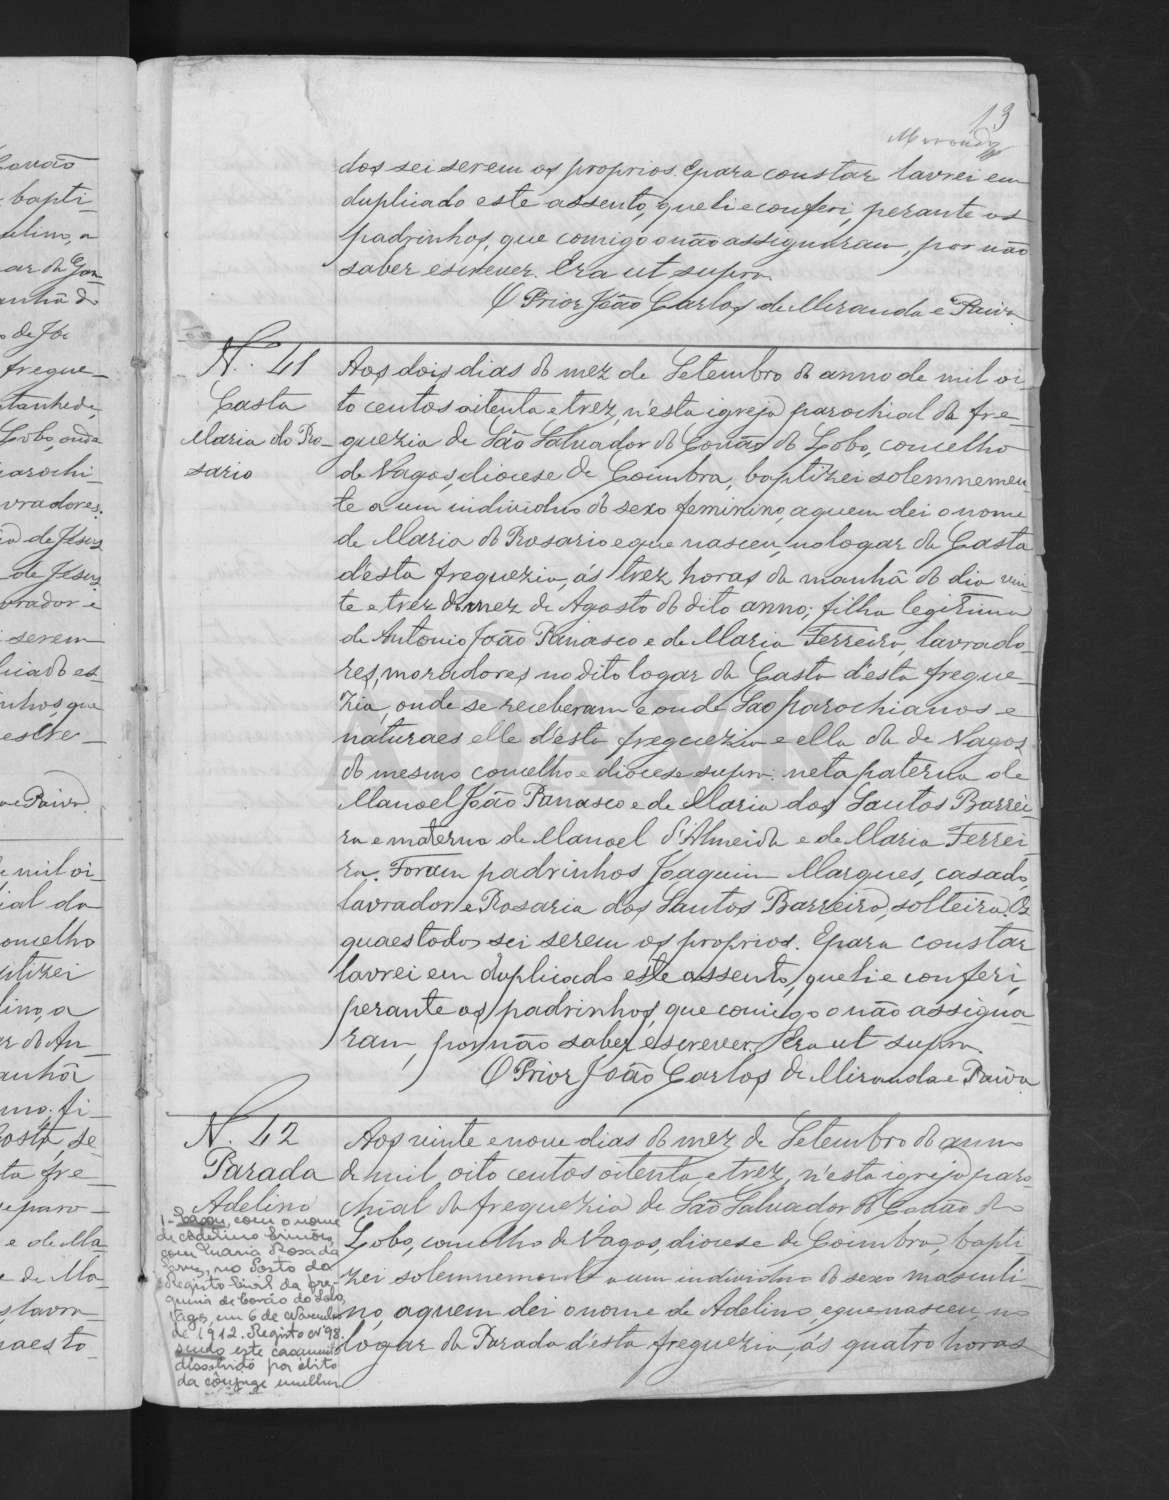 13
Miranda
dos sei serem os proprios. E para constar lavrei em
duplicado este assento, que li e conferi, perante os
padrinhos, que comigo o não assignaram, por não
saber escrever. Era ut supra.
O Prior João Carlos de Miranda e Paiva.
N. 41
Casta
Maria do Ro-
sario
Aos dois dias do mez de Setembro do anno de mil oi-
to centos oitenta e trez, n'esta igreja parochial da fre-
guezia de São Salvador do Covão do Lobo, concelho
de Vagos, diocese de Coimbra, baptizei solemnemen-
te a um individuo do sexo feminino, a quem dei o nome
de Maria do Rosario e que nasceu, no logar da Casta
d'esta freguezia, ás trez horas da manhã do dia vin-
te e trez do mez de Agosto do dito anno; filha legitima
de Antonio João Panasco e de Maria Ferreira, lavrado-
res, moradores no dito logar da Casta d'esta fregue-
zia, onde se receberam e onde são parochianos e
naturaes elle d'esta freguezia e ella da de Vagos
do mesmo concelho e diocese supra: neta paterna de
Manoel João Panasco e de Maria dos Santos Barrei-
ra e materna de Manoel d'Almeida e de Maria Ferrei-
ra. Foram padrinhos Joaquim Marques, casado,
lavrador e Rosaria dos Santos Barreira, solteira. Os
quaes todos sei serem os proprios. E para constar
lavrei em duplicado este assento, que li e conferi,
perante os padrinhos, que comigo o não assigna-
ram, por não saber escrever. Era ut supra.
O Prior João Carlos de Miranda e Paiva.
N. 42
Parada
Adelino
1- Casou, com o nome
de Adelino Simões,
com Maria Rosa da
no Posto do
Registo Civil da fre-
guezia de Covão do Lobo,
Vagos, em 6 de Novembro
de 1912. Registo nº 98.
sendo este casamento
dissolvido por óbito
da cônjuge mulher
Aos vinte e nove dias do mez de Setembro do anno
de mil oito centos oitenta e trez, n'esta igreja paro-
chial da freguezia de São Salvador do Covão do
Lobo, concelho de Vagos, diocese de Coimbra, bapti-
zei solemnemente a um individuo do sexo masculi-
no, a quem dei o nome de Adelino, e que nasceu, no
logar da Parada d'esta freguezia, ás quatro horas